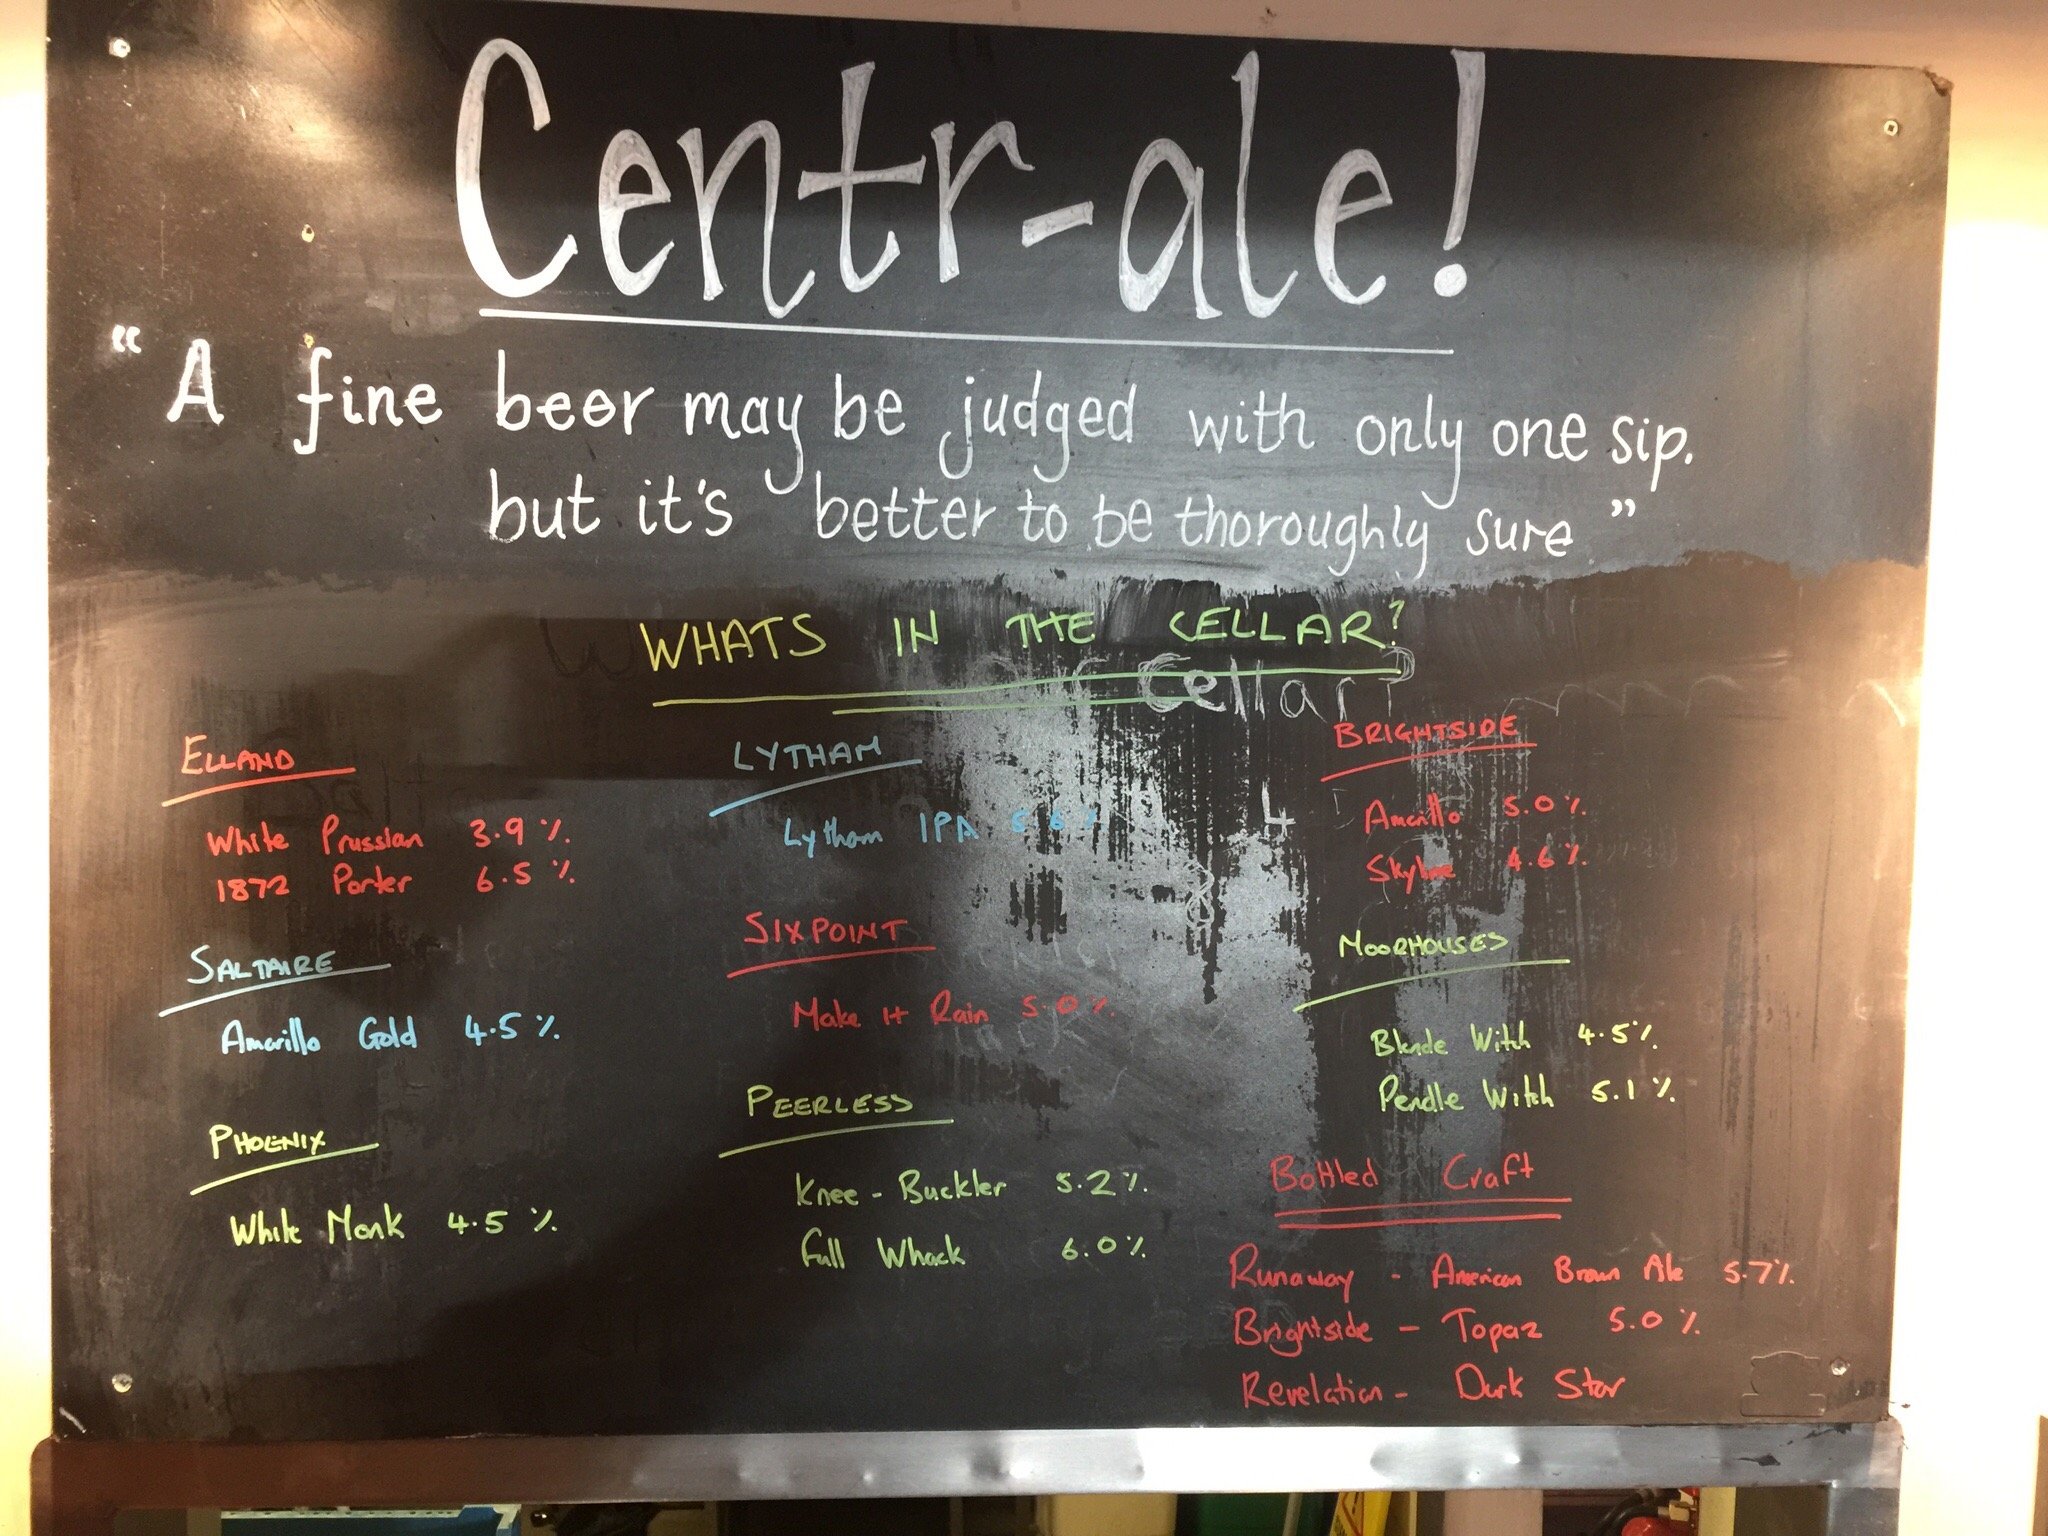 Centr-ale!
"A fine beer may be judged with only one sip.
but it's better to be thoroughly sure"
WHATS IN THE CELLAR?
Cellar?
ELLAND
White Prussian 3.9%
1872 Porter 6.5%
SALTAIRE
Amarillo Gold 4.5%
PHOENIX
White Monk 4.5%
LYTHAM
Lytham IPA 5.6%
SIXPOINT
Make It Rain 5.0%
PEERLESS
Knee-Buckler 5.2%
Full Whack 6.0%
BRIGHTSIDE
Amarillo 5.0%
Skyline 4.6%
MOORHOUSES
Blonde Witch 4.5%
Pendle Witch 5.1%
Bottled Craft
Runaway - American Brown Ale 5.7%
Brightside - Topaz 5.0%
Revelation - Dark Star